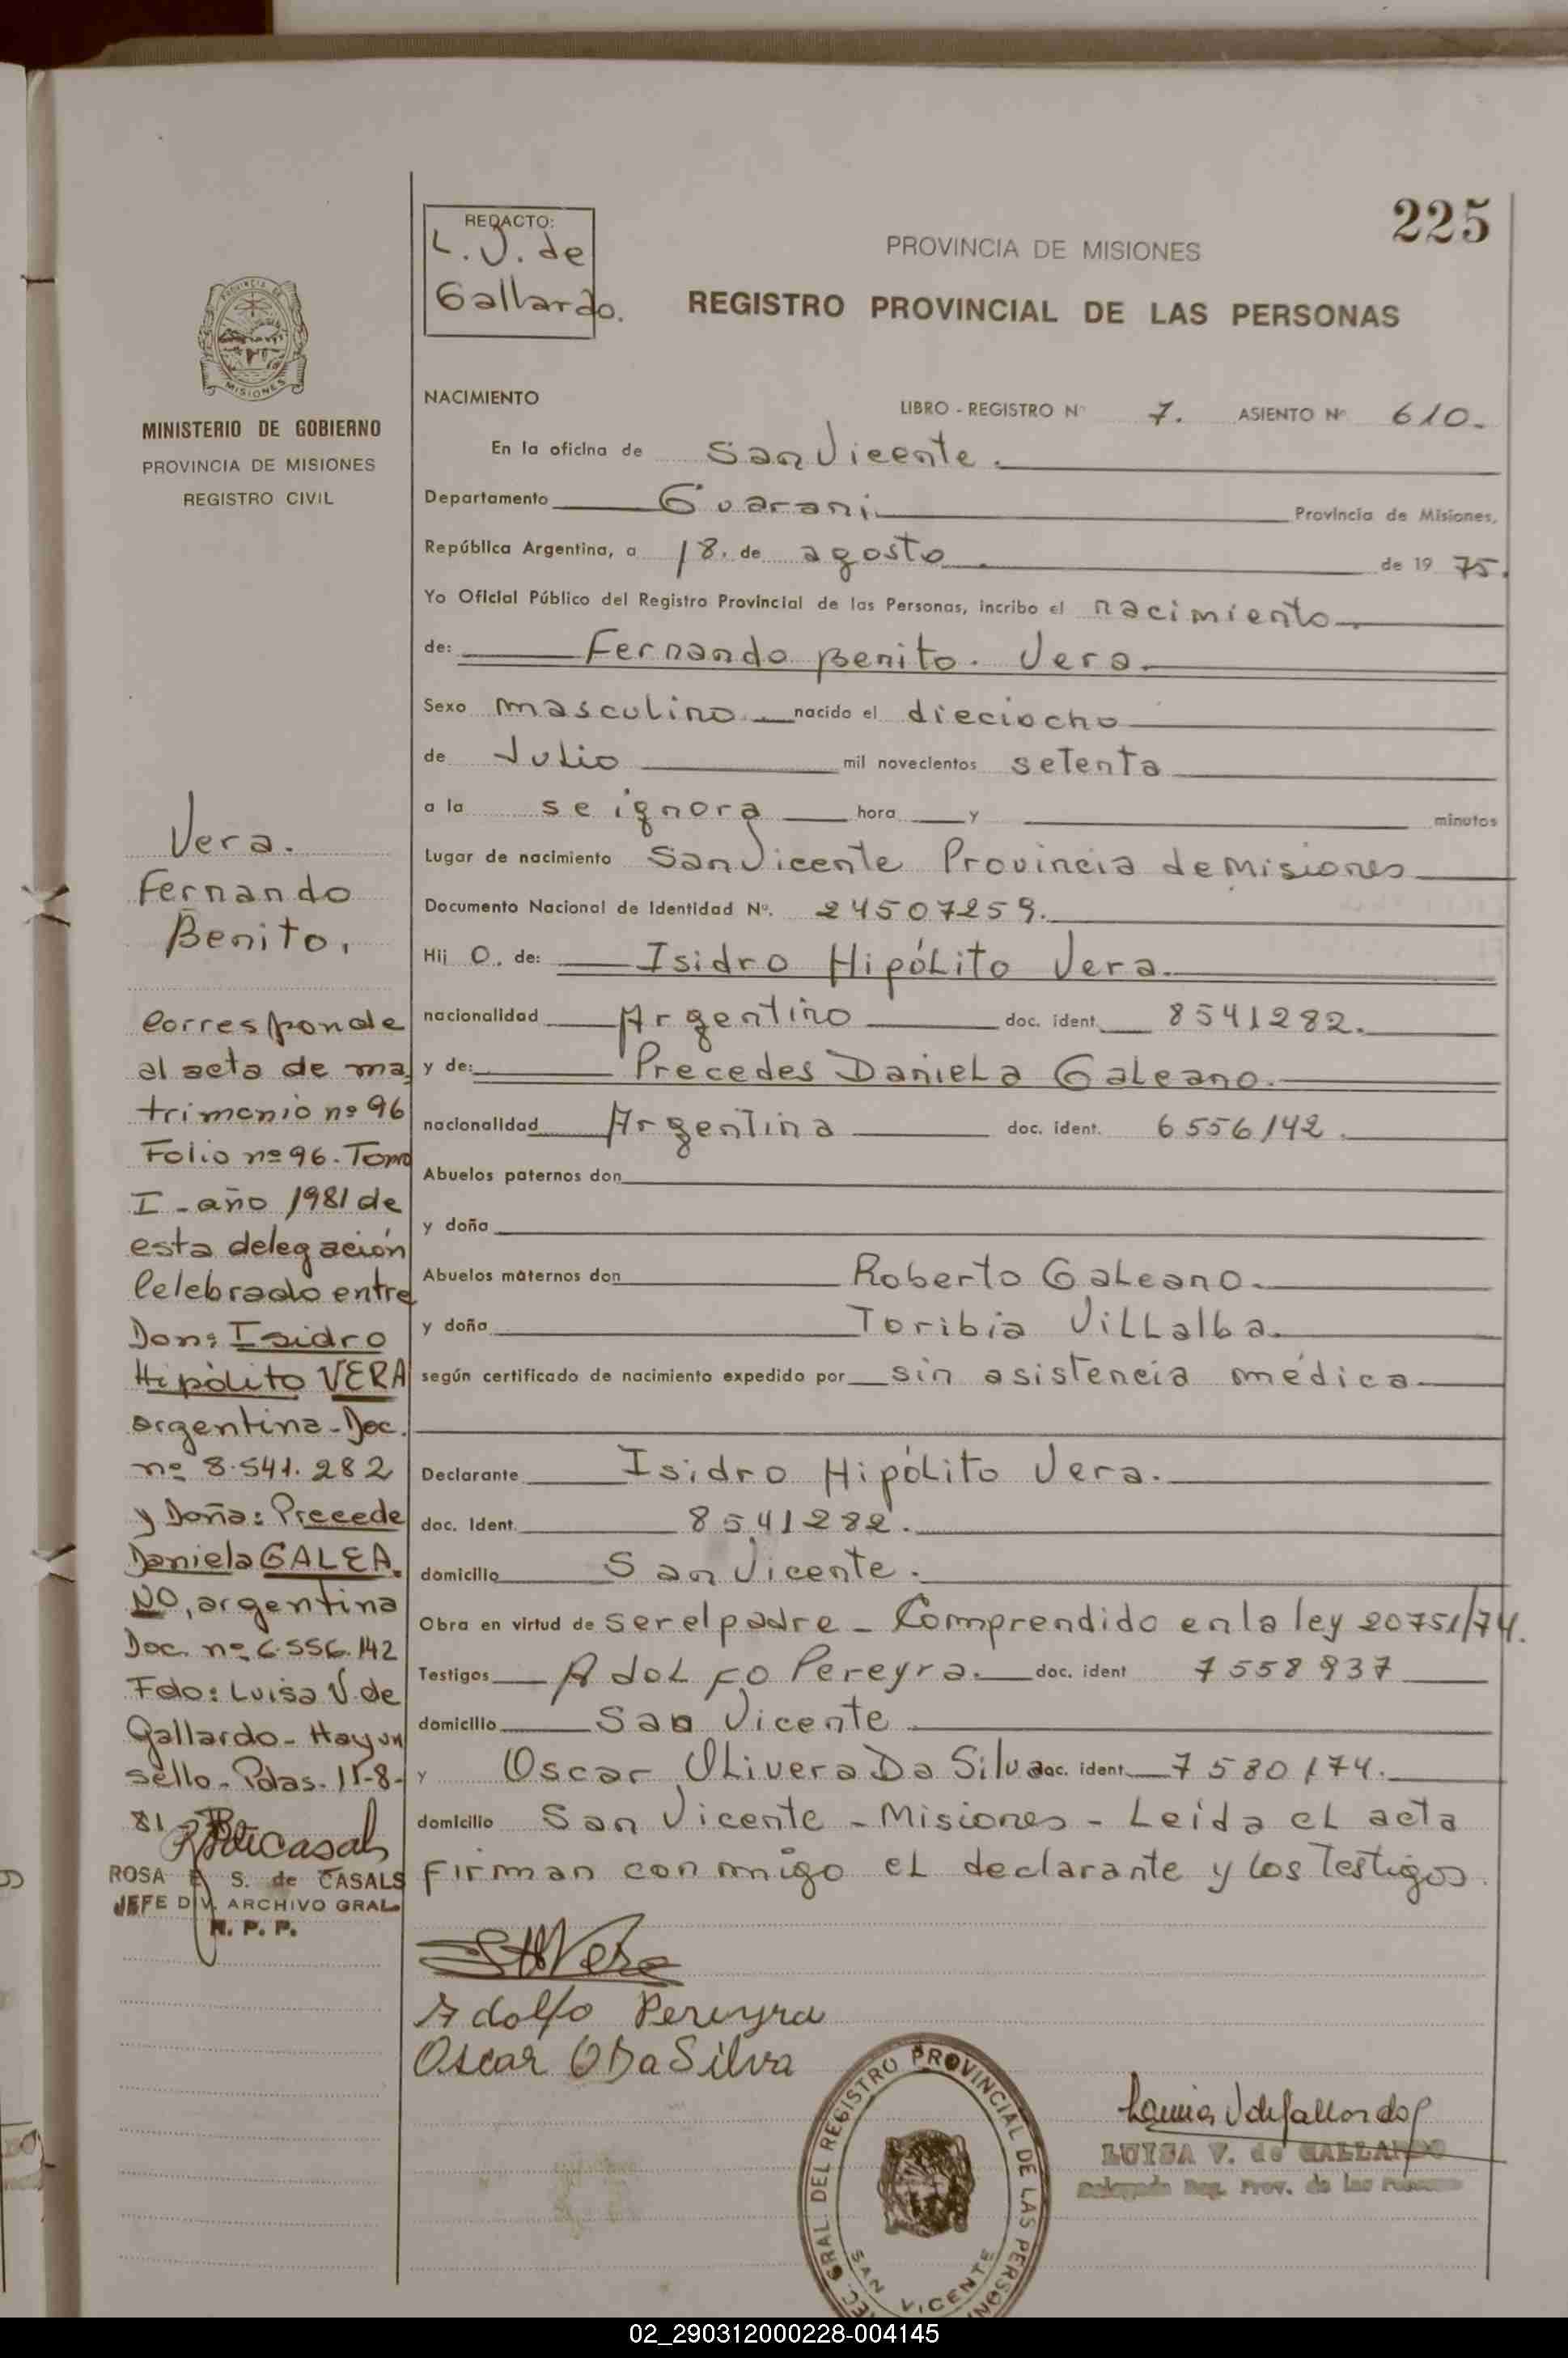 225
REDACTO:
L. V. de
Gallardo.
PROVINCIA DE MISIONES
REGISTRO PROVINCIAL DE LAS PERSONAS
PROVINCIA DE
MISIONES
MINISTERIO DE GOBIERNO
PROVINCIA DE MISIONES
REGISTRO CIVIL
NACIMIENTO
LIBRO - REGISTRO Nº 7. ASIENTO Nº 610.
En la oficina de San Vicente.
Departamento Guarani Provincia de Misiones,
República Argentina, a 18. de agosto de 1975.
Yo Oficial Público del Registro Provincial de las Personas, incribo el nacimiento
de: Fernando Benito. Vera.
Sexo masculino nacido el dieciocho
de Julio mil novecientos setenta
a la se ignora hora y minutos
Lugar de nacimiento San Vicente Provincia de Misiones
Documento Nacional de Identidad Nº. 24507259.
Hij o. de: Isidro Hipólito Vera.
nacionalidad Argentino doc. ident. 8541282.
y de: Precedes Daniela Galeano.
nacionalidad Argentina doc. ident. 6556142.
Abuelos paternos don
y doña
Abuelos maternos don Roberto Galeano.
y doña Toribia Villalba.
según certificado de nacimiento expedido por sin asistencia médica
Declarante Isidro Hipólito Vera.
doc. Ident. 8541282.
domicilio San Vicente.
Obra en virtud de ser el padre - Comprendido en la ley 20751/74.
Testigos Adolfo Pereyra. doc. ident 7558937
domicilio San Vicente
y Oscar Olivera Da Silva doc. ident. 7580174.
domicilio San Vicente - Misiones - Leida el acta
firman conmigo el declarante y los Testigos.
Vera.
Fernando
Benito.
Corresponde
al acta de ma
trimonio nº 96
Folio nº 96. Tomo
I - año 1981 de
esta delegación
Celebrado entre
Don: Isidro
Hipólito VERA
argentina - Doc.
nº 8.541.282
y Doña: Precede
Daniela GALEA.
NO, argentina
Doc. nº 6.556.142
Fdo: Luisa V. de
Gallardo - Hay un
sello - Pdas. 11-8-
81
ROSA E. S. de CASALS
JEFE DIV. ARCHIVO GRAL.
R. P. P.
Vera
Adolfo Pereyra
Oscar O Da Silva
GRAL. DEL REGISTRO PROVINCIAL DE LAS PERSON
SAN VICENTE
Luisa V de Gallardo
LUISA V. de GALLARDO
Delegada Reg. Prov. de las Personas
02_290312000228-004145